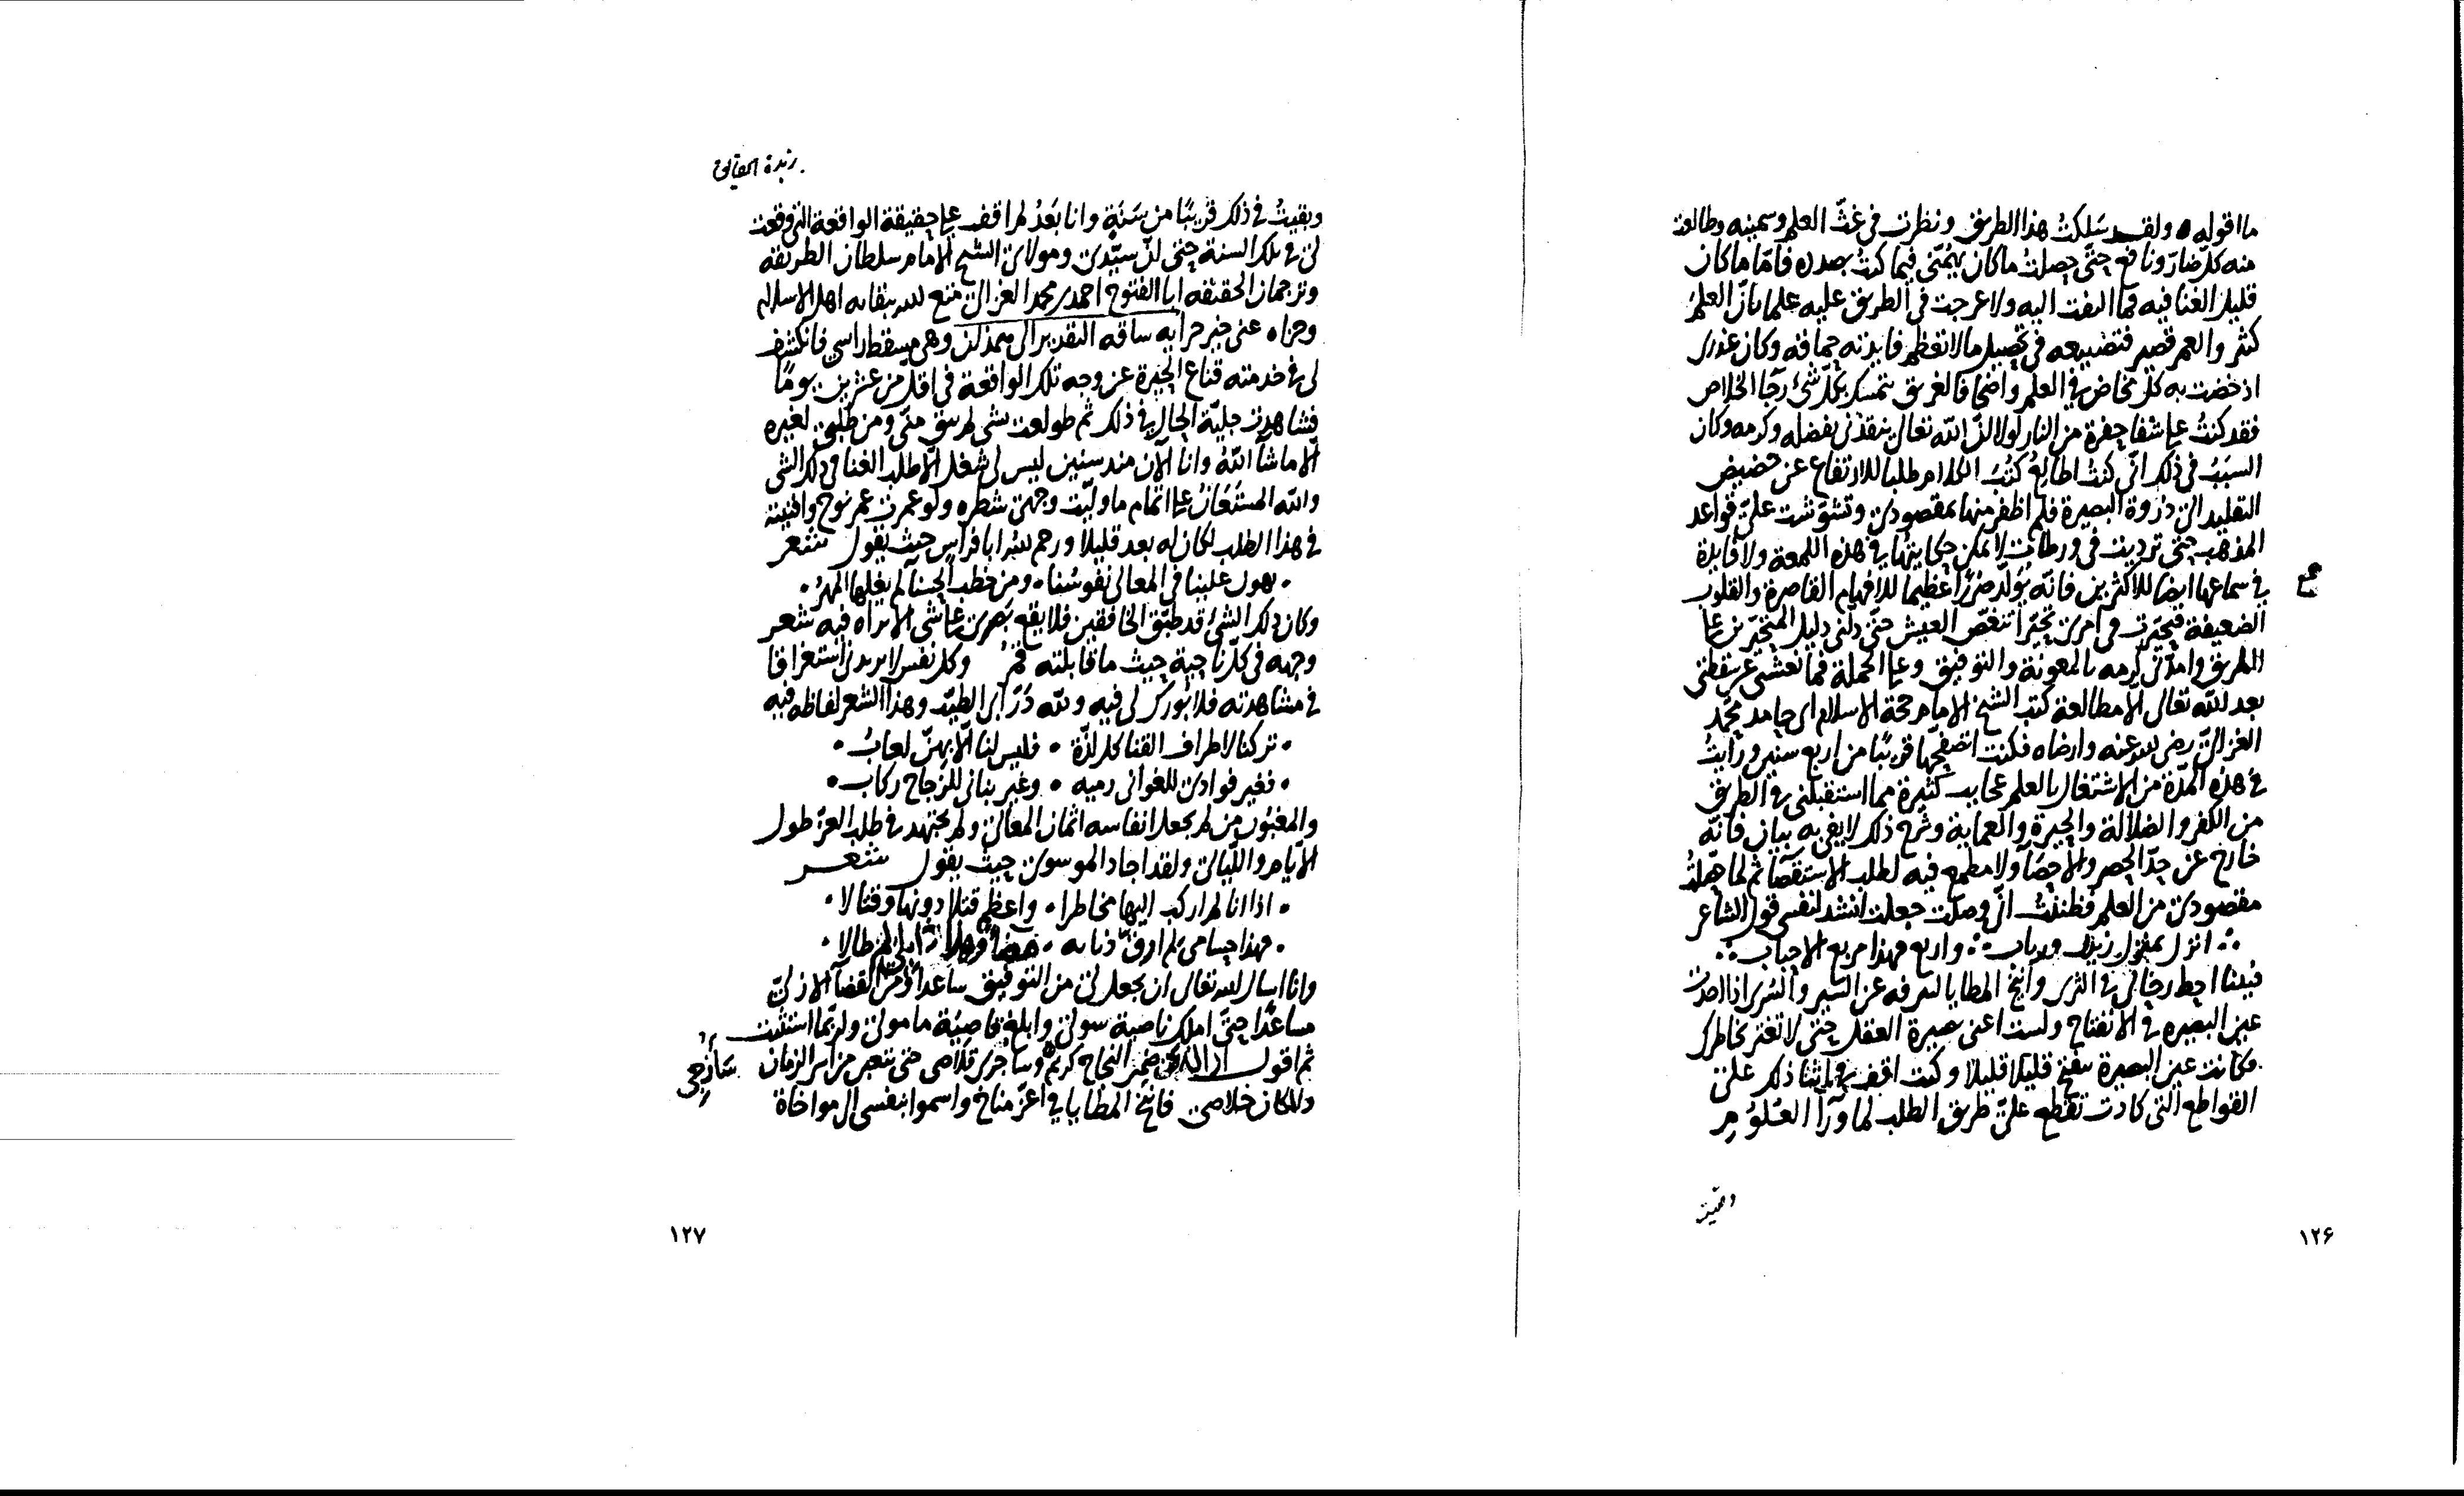 ما اقوله ولقد سَلكتُ هذا الطريق ونظرت فى غثّ العلم وسمينه وطالعت
منه كلّ ضارّ ونافع حتّى حصلتُ ما كان يهُمّنى فيما كنتُ بصدده فامّا ما كان
قليل الغنا فيه فما التفت اليه ولا عرجت فى الطريق عليه علما بانّ العلم
كثير والعمر قصير فتضييعه فى تحصيل ما لا تعظم فايدته حماقه وكان عذرى
اذ خضت به كل مخاض فى العلم واضحا فالغريق يتمسك بكلّ شئ رجآ الخلاص
فقد كنتُ على شفا حفرة من النار لولا انّ الله تعالى ينقذنى بفضله وكرمه وكان
السبَبُ فى ذلك انّى كنتُ اطالعُ كتُبَ الكلام طلبا للارتفاع عن حضيض
التقليد الى ذروة البصيرة فلم اظفر منها بمقصودى وتشوّشت علىّ قواعد
المذهب حتى تردّيت فى ورطات لا يمكن حكايتُها فى هذه اللمعة ولا فايدة
فى سماعها ايضا للاكثرين فانّه يُوَلّد ضررًا عظيما للافهام القاصرة والقلوب
الضعيفة فتحيّرت فى امرى تحيّرا تنغّص العيش حتّى دلّنى دليل المتحيّرين على
الطريق وامدّنى كرمه بالمعونة والتوفيق وعلى الجملة فما نعشنى عن سقطتى
بعد الله تعالى الّا مطالعة كتب الشيخ الامام حجة الاسلام ابى حامد محمّد
الغزالىّ رضى الله عنه وارضاه فكنت اتصفّحُها قريبًا من اربع سنين ورايتُ
فى هذه المدّة من الاشتغال بالعلم عجايب كثيرة مما استقبلنى فى الطريق
من الكفر والضلالة والحيرة والعماية وشرح ذلك لا يفى به بيان فانّه
خارج عن حدّ الحصر والاحصآ ولا مطمع فيه لطلب الاستقصآ ثم لما حصّلتُ
مقصودى من العلم وظننتُ انّى وصلت جعلت انشد لنفسى قول الشاعر
انزل بمنزل زينب ورباب واربع فهذا مربع الاحباب
فبينا احط رحالى فى الثرى وانيخ المطايا لترفه عن السير والسُرى اذا اخذت
عين البصيره فى الانفتاح ولست اعنى بصيرة العقل حتى لا تغتر بخاطرك
فكانت عين البصيرة تنفتح قليلا قليلا وكنت اقف فى اثنا ذلك على
القواطع التى كادت تقطع علىّ طريق الطلب لما ورآ العُلوُم
١٢۶
زبدة الحقايق
وبقيتُ فى ذلك قريبًا من سَنَةٍ وانا بَعَدُ لم اقف على حقيقة الواقعة التى وقعت
لى فى تلك السنة حتى انّ سيّدى ومولاى الشيخ الامام سلطان الطريقه
وترجمان الحقيقه ابا الفتوح احمد بن محمد الغزالى متع الله ببقايه اهل الاسلام
وجزاه عنى خير جزايه ساقه التقدير الى همذان وهى مسقط راسى فانكشف
لى فى خدمته قناع الحيرة عن وجه تلك الواقعة فى اقل من عشرين يومًا
فشاهدت جليّة الحال فى ذلك ثم طولعت بشى لم يبق منّى ومن طلبى لغيره
الّا ما شآ اللهُ وانا الآن منذ سنين ليس لى شغل الّا طلب الغنا فى ذلك الشى
والله المستَعَانُ على اتمام ما وليّت وجهى شطره ولو عمرت عمر نوح وافنيته
فى هذا الطلب لكان له بعد قليلا ورحم الله ابا فراس حيث يقول شعر
يهون علينا فى المعالى نفوسُنا ومن خطب الحسنآ لم يغلها المهرُ
وكان ذلك الشئ قد طبّق الخافقين فلا يقع بَصرى على شى الا اراه فيه شعر
وجهه فى كلّ ناحية حيث ما قابلته قمرُ وكل نفس لا يزيدنى استغراقا
فى مشاهدته فلا بُورك لى فيه ولله دَرّ ابى الطيّب وهذا الشعر لفاظه فيه
تركنا لاطراف القنا كل لذّة فليس لنا الّا بهنّ لعابُ
فغير فوادى للغوانى رميه وغير بنانى للزجاج ركاب
والمغبُون من لم يجعل انفاسه اثمان المعالى ولم يجتهد فى طلب العزّ طول
الايّام واللّيالى ولقد اجاد الموسوى حيث يقول شعر
اذا انا لم اركب اليها مخاطرا واعظم قتلا دونها وقتالا
فهذا حسامى لم ارق ذبابه
وانا اسال الله تعالى ان يجعل لى من التوفيق ساعدا ومن القضآ الازلىّ
مساعدًا حتّى املك ناصية سولى وابلغ قاصية مامولى ولربّما استثبت
ثم اقول ضمير النجاح كريم وساجرى قلاصى حتى تتعبر من اسر الزمان
فانيخ المطايا فى اعزّ مناخ واسموا بنفسى الى مواخاة
١٢٧